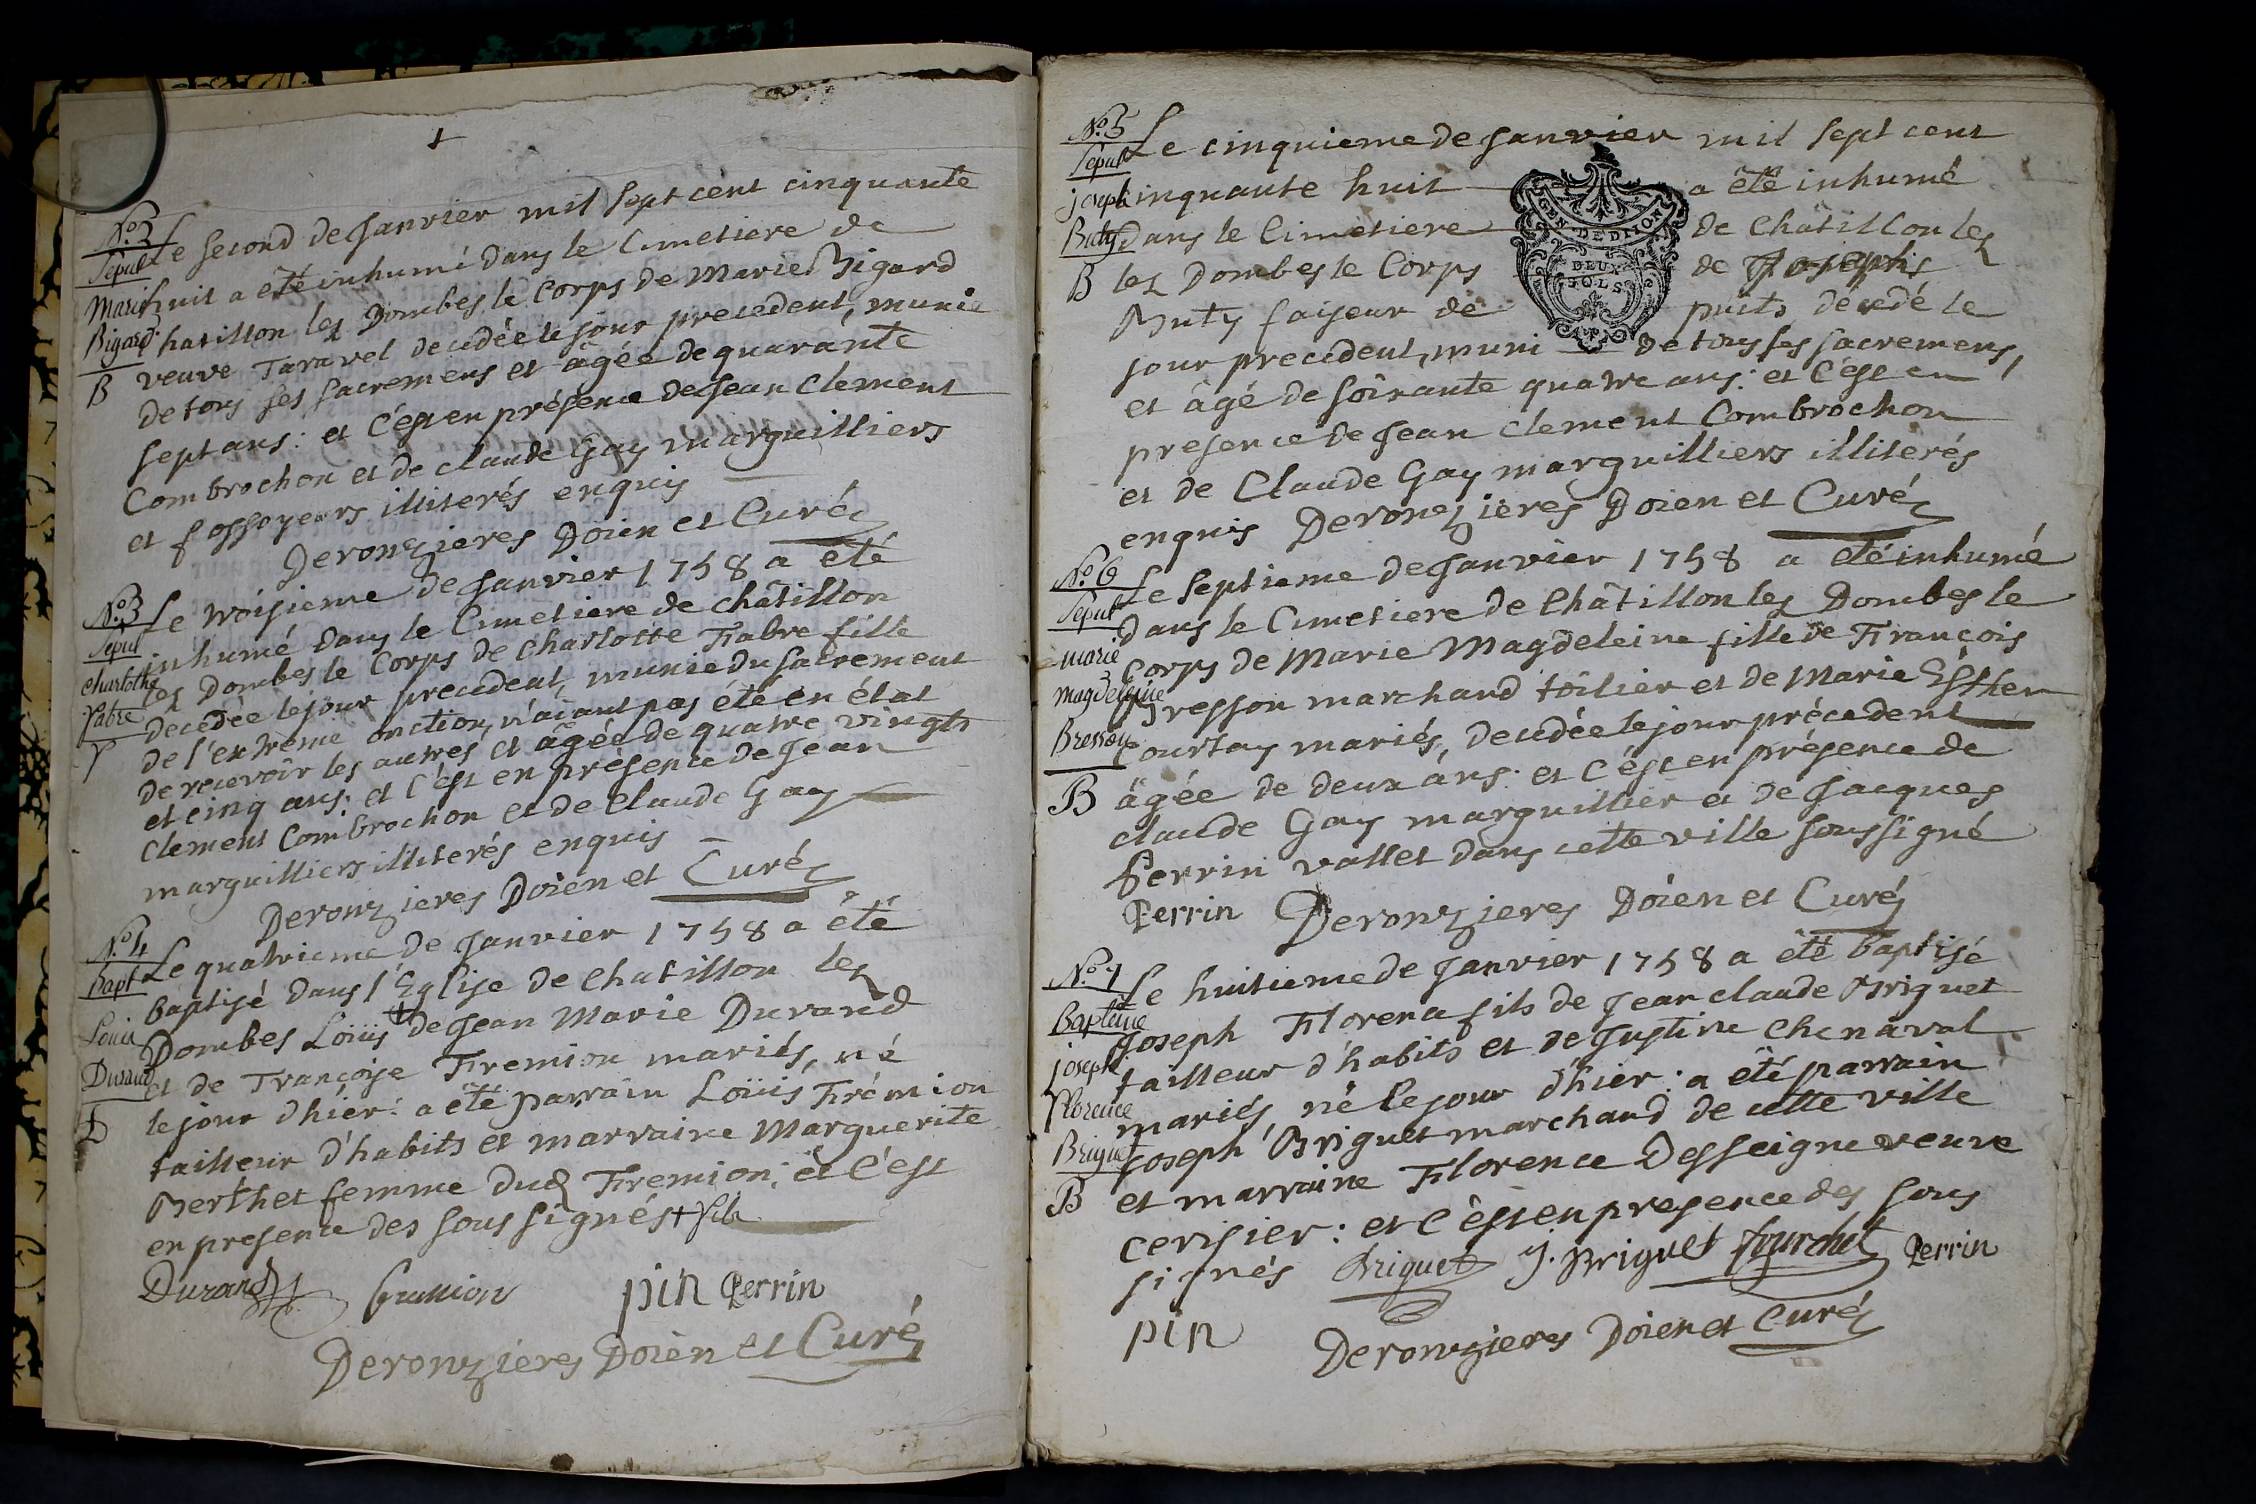 Le second de Janvier mil sept cent cinquante
huit a été inhumé dans le Cimetiere de
Chatillon lez Dombes le Corps de Marie Bigard
veuve Taravel decédée le jour precédent, munie
de tous ses sacremens et âgée de quarante
sept ans: et c'est en présence de Jean Clement
Combrochon et de claude Gay marguilliers
et fossoyeurs illiterés enquis
Deronzieres Doien et Curé
N.º 3
Sepul
Marie
Bigard
B
Le troisieme de Janvier 1758 a été
inhumé dans le Cimetiere de châtillon
lez Dombes le Corps de Charlotte Fabre fille
decédée le jour precedent, munie du sacrement
de l'extrême onction, n'aiant pas été en état
de recevoir les autres et âgée de quatre vingts
et cinq ans: et c'est en présence de Jean
Clement Combrochon et de Claude Gay
marguilliers illiterés enquis
Deronzieres Doien et Curé
N.º 3
Sepul
Charlothe
fabre
Le quatrieme de Janvier 1758 a été
baptisé dans l'Eglise de Chatillon lez
Dombes Loüis + de Jean Marie Durand
et de Françoise Fremion mariés, né
le jour d'hier: a été parrain Loüis Frémion
tailleur d'habits et marraine Marguerite
Berthet femme dud Fremion; et c'est
en presence des sous signés + fils
Durand fremion pin Perrin
Deronzieres Doien et Curé
N.º 4
Bapt
Louis
Durand
N.º 5
Sepul
joseph
Buty
B
Le cinquieme de Janvier mil sept cent
cinquante huit a été inhumé
dans le Cimetiere de Châtillon lez
lez Dombes le Corps de Joseph
Buty faiseur de puits décedé le
jour precedent, muni de tous ses sacremens,
et âgé de soixante quatre ans: et c'est en
presence de Jean Clement Combrochon
et de Claude Gay marguilliers illiterés
enquis Deronzieres Doien et Curé
GEN. DE DIJON
DEUX
SOLS
N.º 6
Sepul
marie
magdeleine
Bresson
B
Le septieme de Janvier 1758 a été inhumé
dans le Cimetiere de Châtillon lez Dombes le
Corps de Marie Magdeleine fille de François
Bresson marchand toilier et de Marie Esther
Courtay mariés, decédée le jour précedent
âgée de deux ans: et c'est en présence de
claude Gay marguillier et de Jacques
Perrin vallet dans cette ville soussigné
Perrin Deronzieres Doien et Curé
N.º 7
Bapteme
joseph
Florence
Briguet
B
Le huitieme de Janvier 1758 a été baptisé
Joseph Florence fils de Jean claude Briguet
tailleur d'habits et de Justine Chenaval
mariés, né le jour d'hier: a été parrain
Joseph Briguet marchand de cette ville
et marraine Florence Desseigne veuve
cerisier: et c'est en presence des sous
signés Briguet J. Briguet fourchet Perrin
pin Deronzieres Doien et Curé